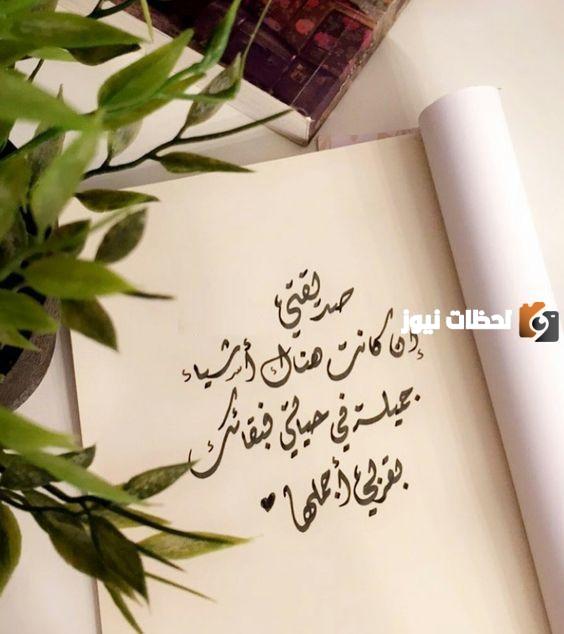 صديقتي
إن كانت هناك أشياء
جميلة في حياتي فبقائك
بقربي أجملها
لحظات نيوز